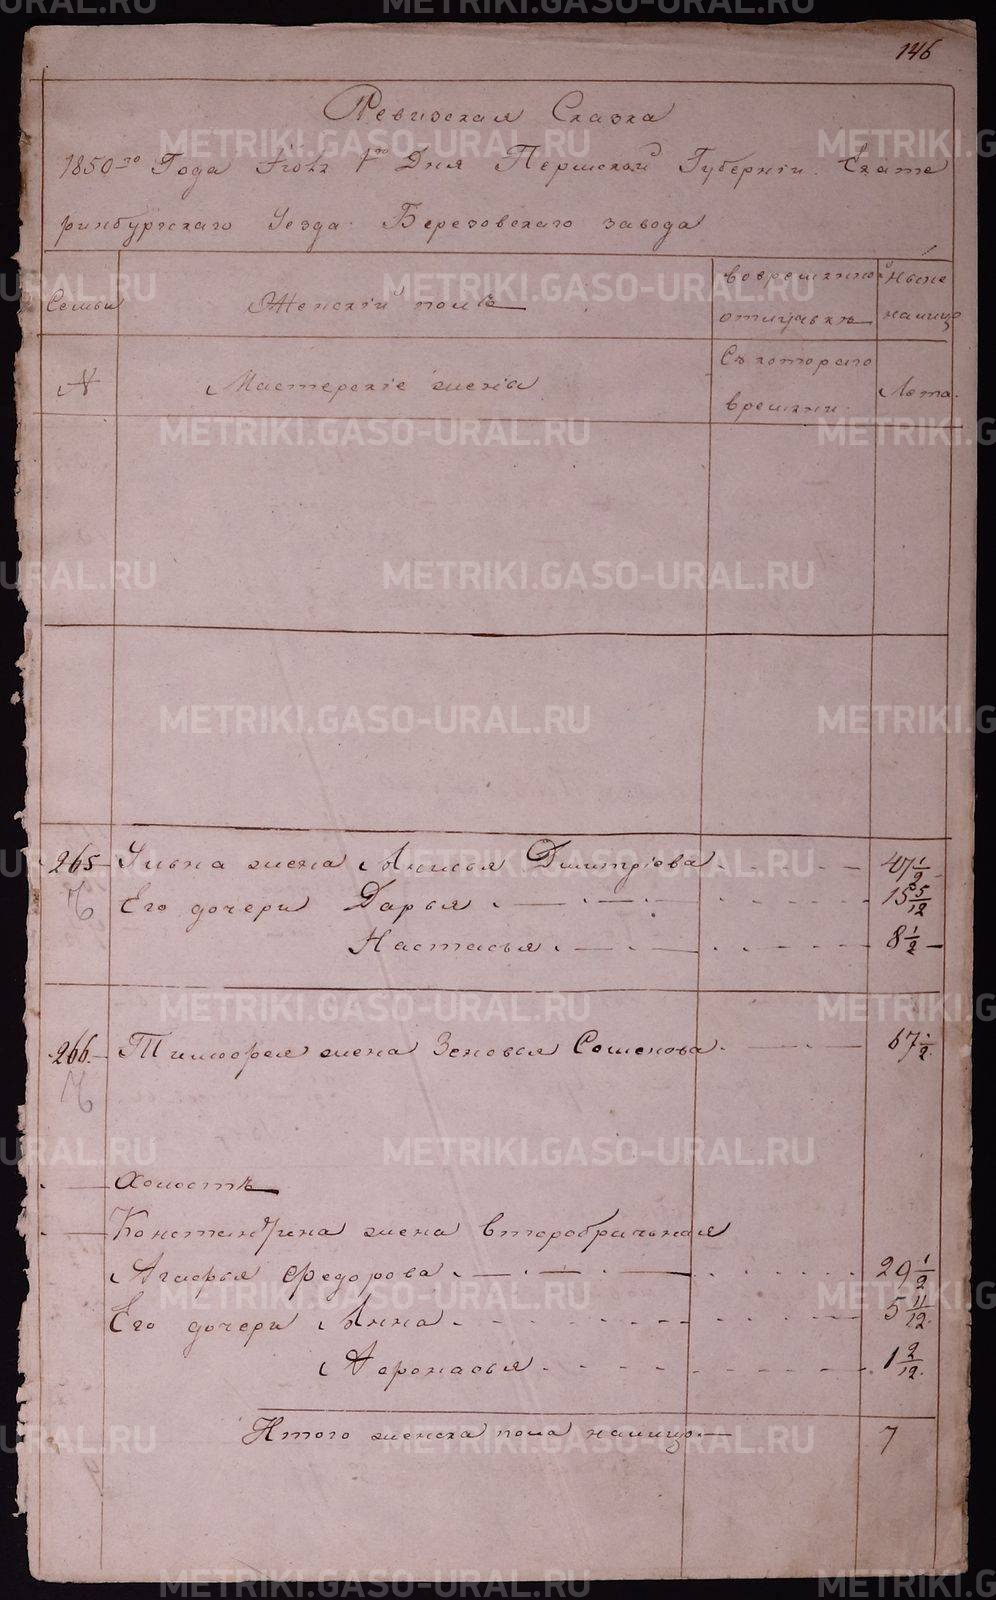 146
Ревизская Сказка
1850-го Года 1го Дня Пермской Губернiи Екате
ринбургскаго Уезда Березовскаго завода
Семьи
Женскiй полъ
во временной отлучке
Ныне налицо
№
Мастерскiе жена
Съ котораго времяни
Лета
265 Ульяна жена Анисья Димитрiева 47 1/2
Его дочери Дарья 15 5/12
Настасья 8 1/2
266 Тимофея жена Зеновья 67 1/2
Холостъ
Констентина жена второбрачьная
Агафья Федорова 29 1/2
Его дочери Анна 5 11/12
Афонасья 1 2/12
Итого женска пола налицо 7
METRIKI.GASO-URAL.RU